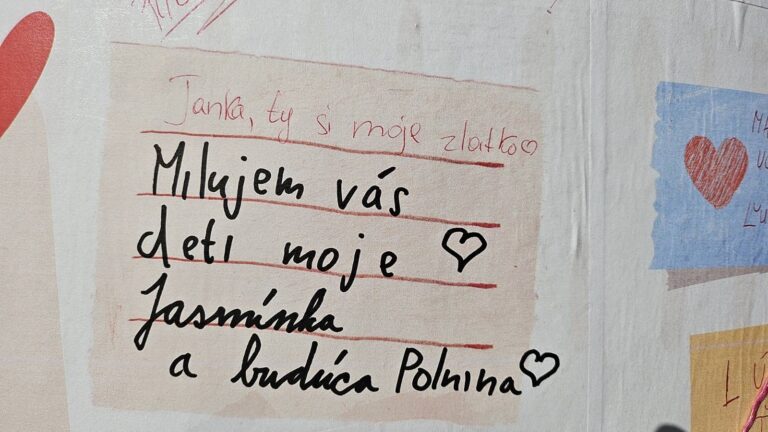 Janka, ty si moje zlatko♡
Milujem vás
deti moje ♡
Jasmínka
a budúca Polnina♡
L Ú